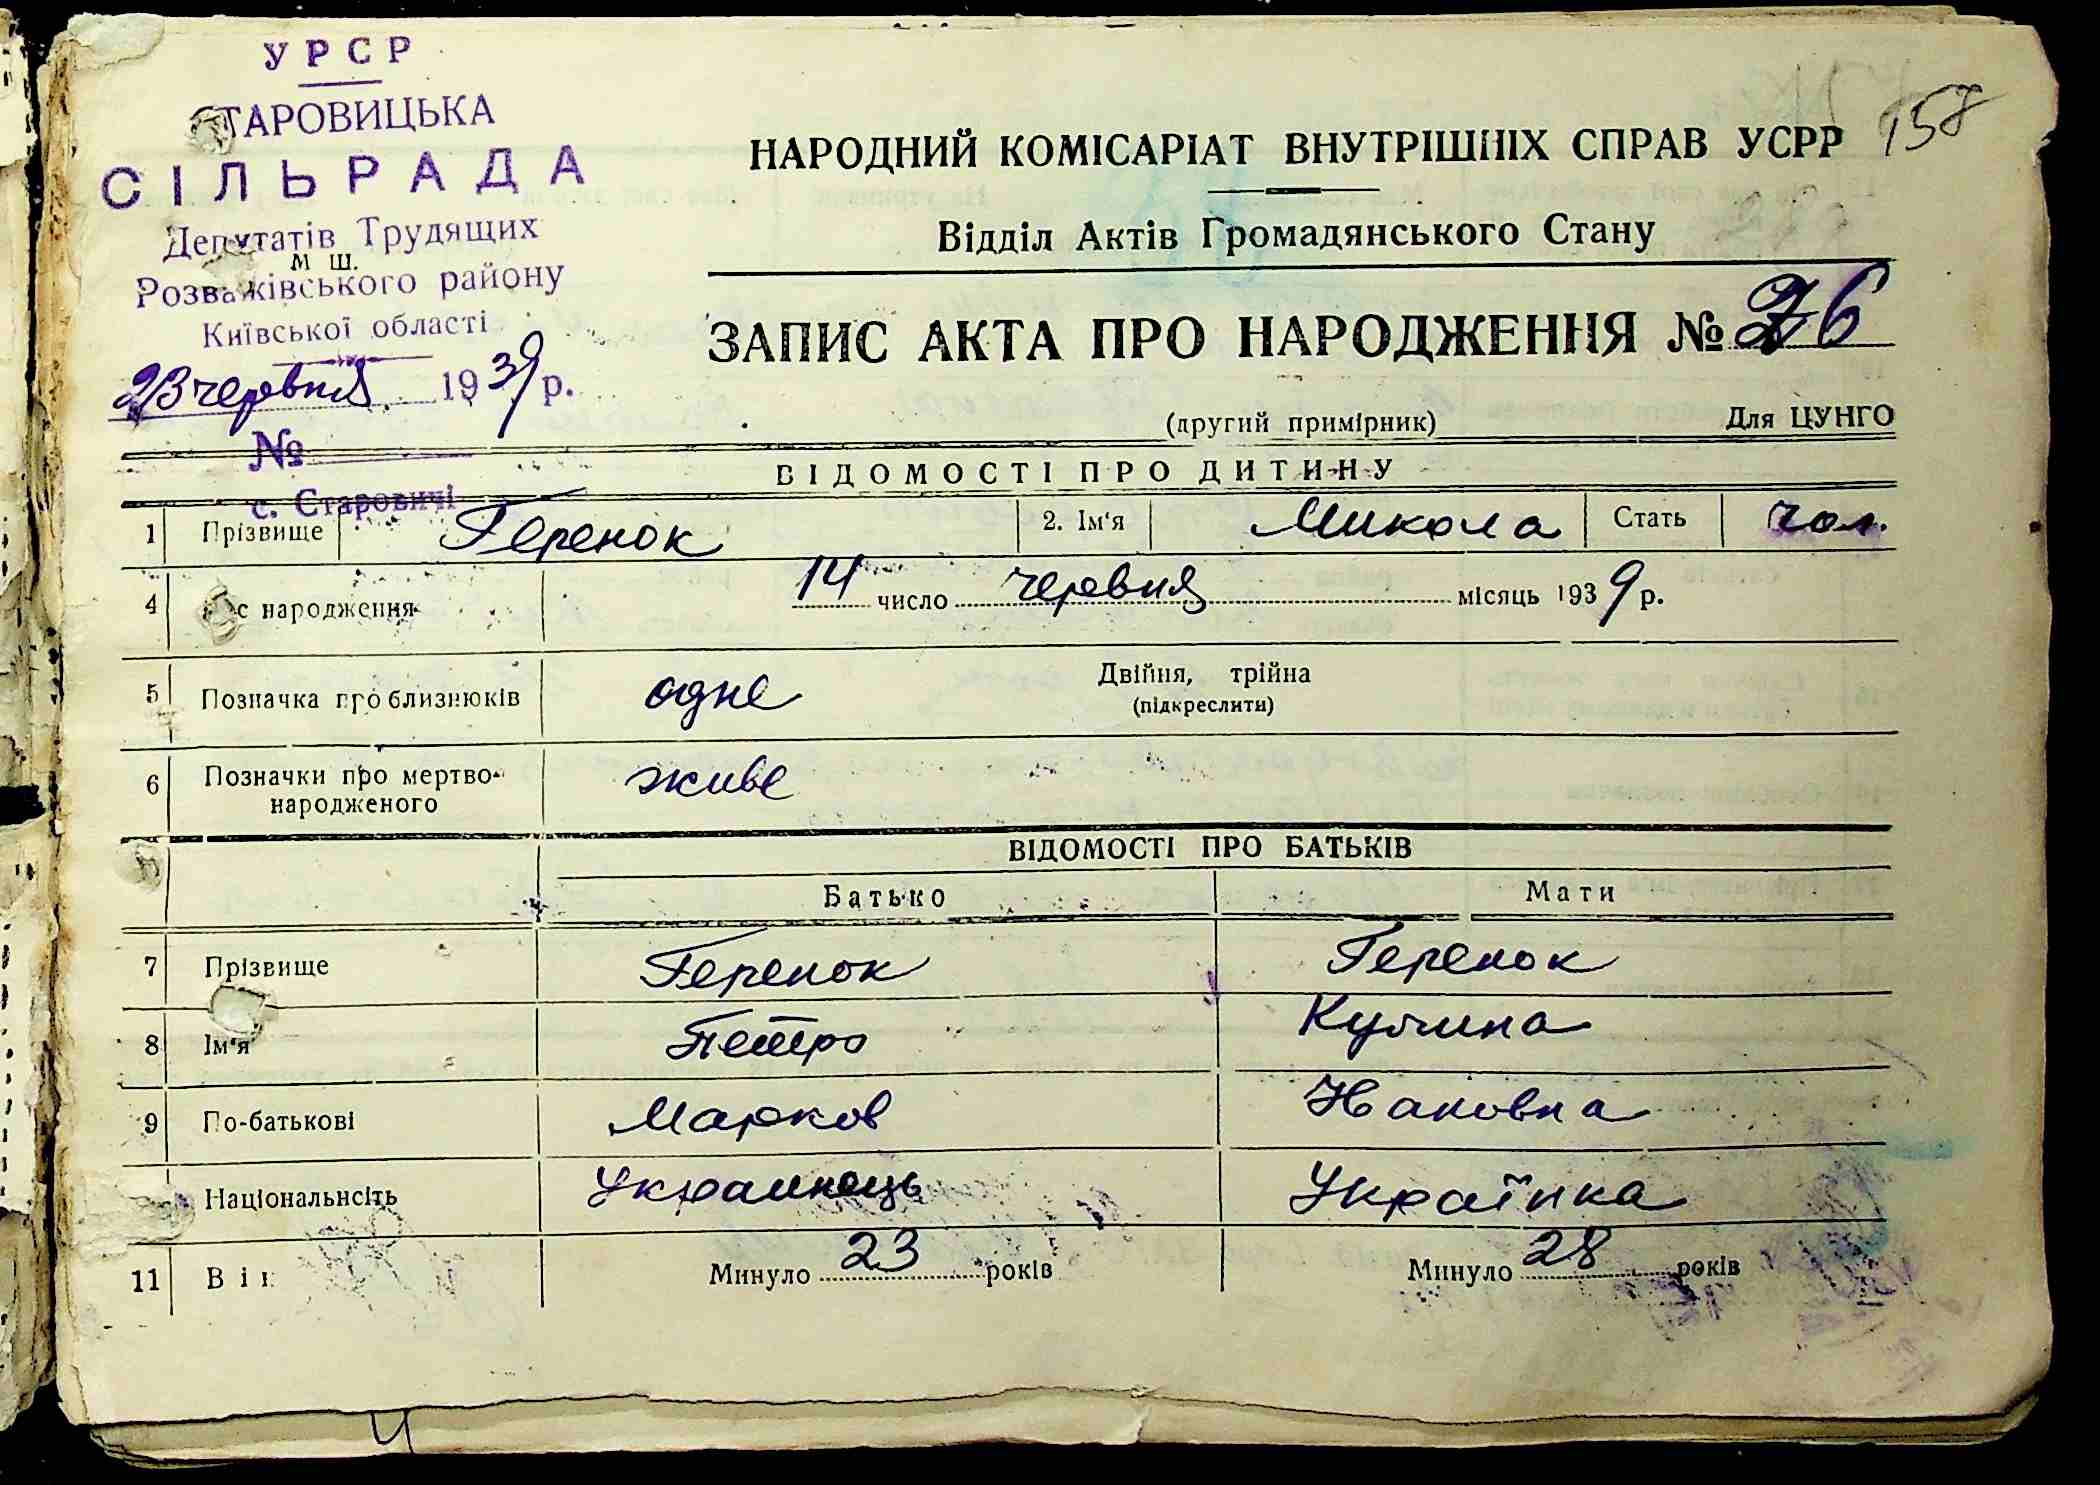 УРСР
СТАРОВИЦЬКА
СІЛЬРАДА
Депутатів Трудящих
м ш.
Розважівського району
Київської області
23 червня 1939 р.
№
с. Старовичі
158
НАРОДНИЙ КОМІСАРІАТ ВНУТРІШНІХ СПРАВ УСРР
Відділ Актів Громадянського Стану
ЗАПИС АКТА ПРО НАРОДЖЕННЯ № 76
(другий примірник) Для ЦУНГО
ВІДОМОСТІ ПРО ДИТИНУ
1 Прізвище Геренок 2. Ім'я Микола Стать чол.
4 с народження 14 число червня місяць 1939 р.
5 Позначка про близнюків одне Двійня, трійна
(підкреслити)
6 Позначки про мертво-
народженого живе
ВІДОМОСТІ ПРО БАТЬКІВ
Батько Мати
7 Прізвище Геренок Геренок
8 Ім'я Петро Кулина
9 По-батькові Марков
Національність Украинець Українка
11 Вік Минуло 23 років Минуло 28 років